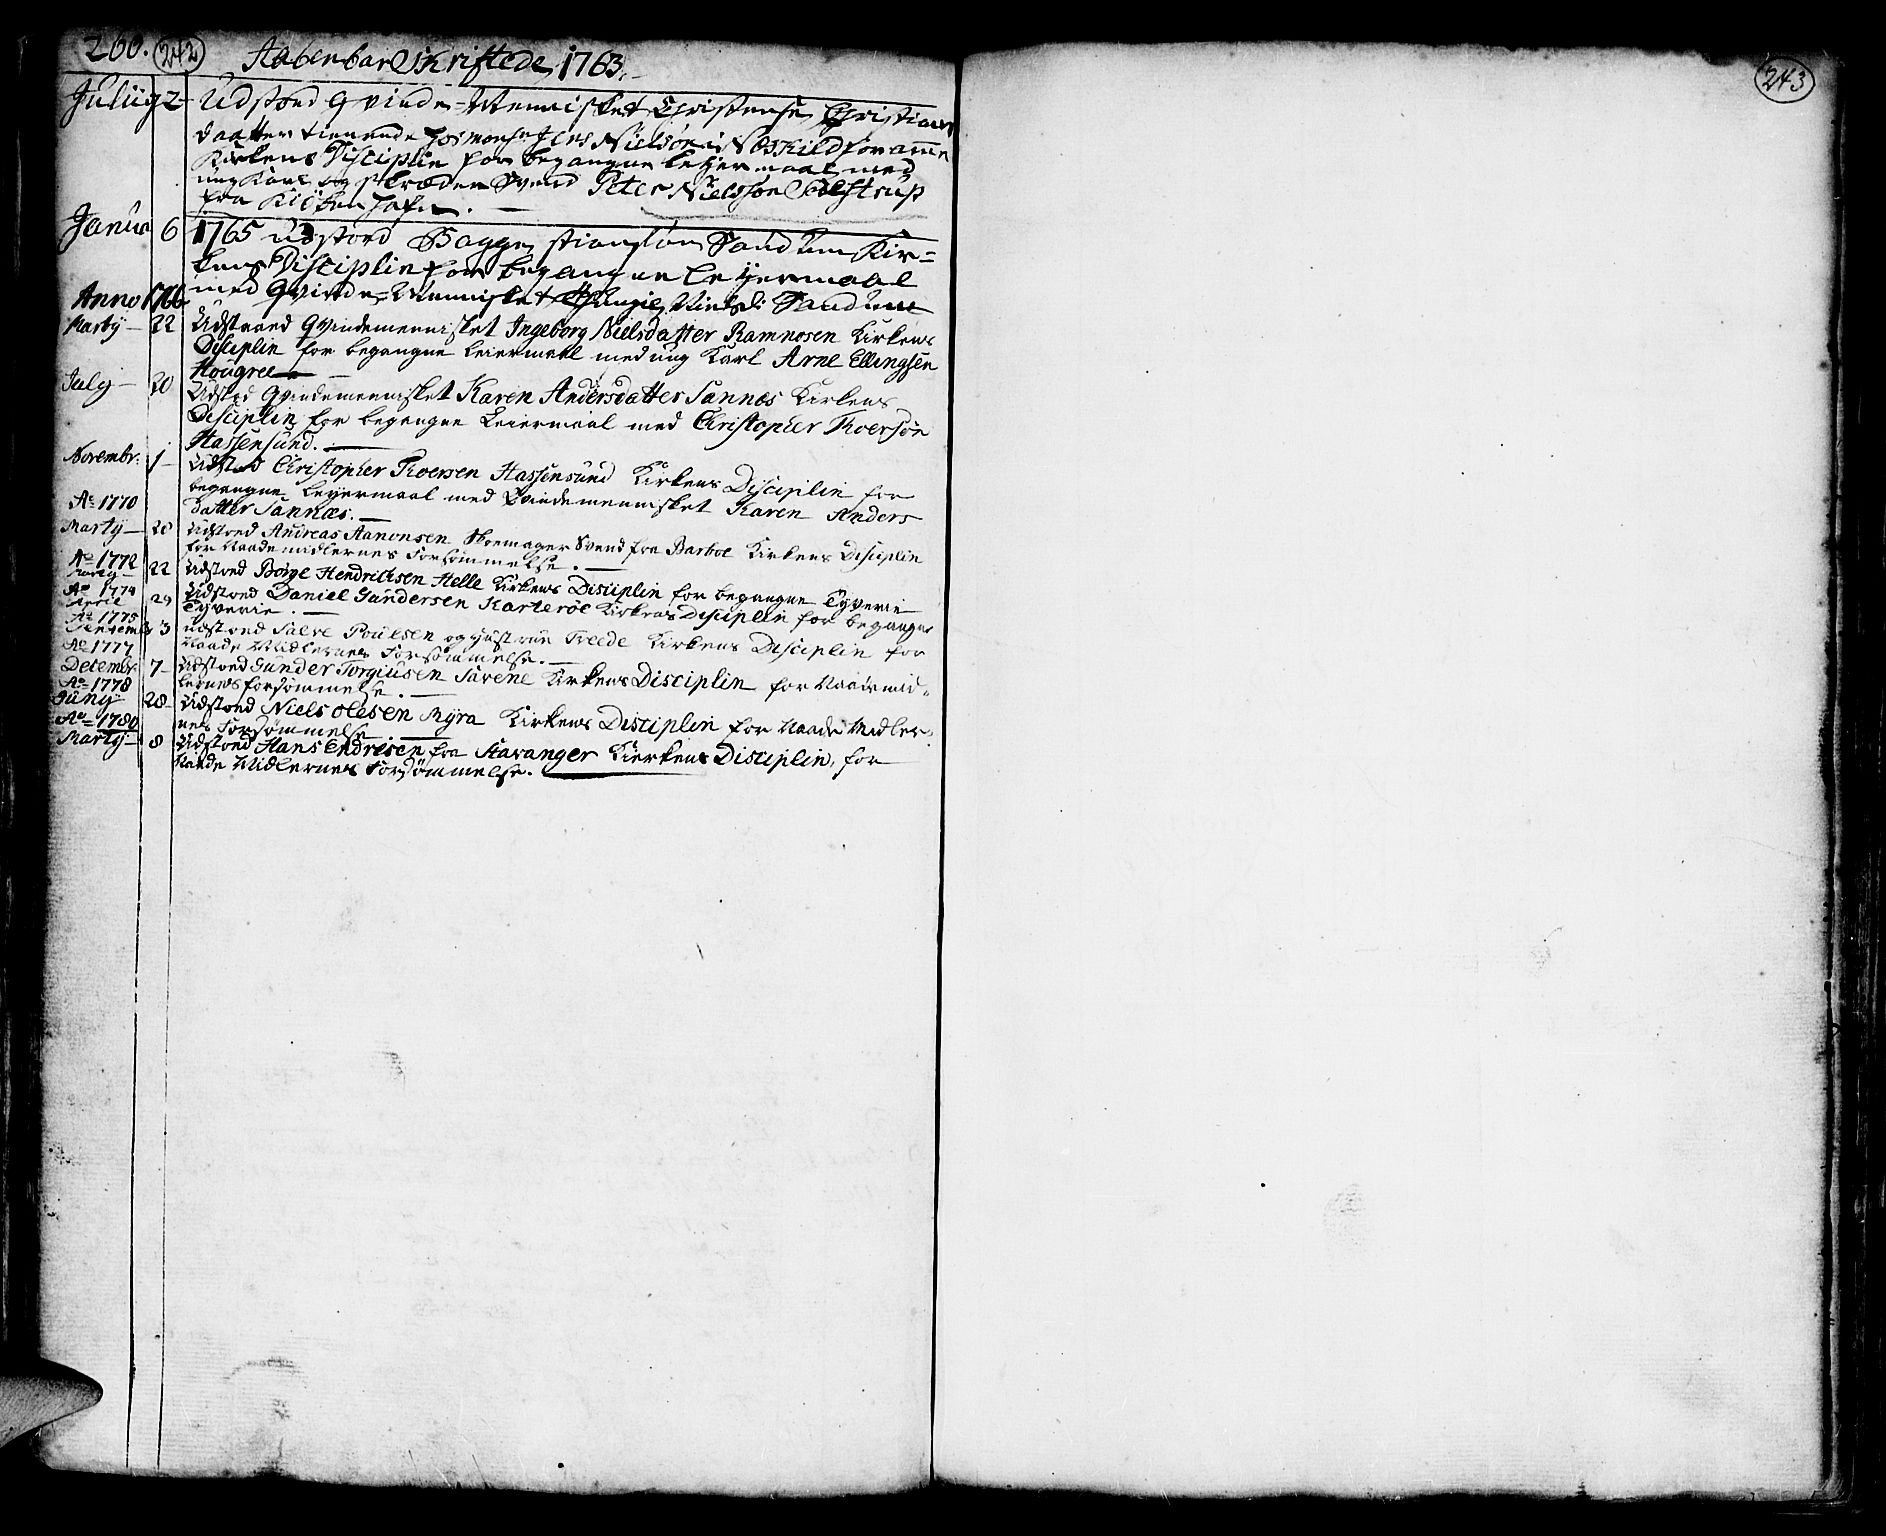 260. 242 Aabenbar Skriftede 1763.
Julii 12 Udstoed Qvinde-Mennisket Christense Christians
daatter tienende hos Jens Nielsøn i for amme
Kirkens Disciplin for begangne leyermaal med
ung Karl og skræder Svend Peter Nielssøn
fra Kiøbenhafn.
Janua 6 1765 udstoed Aagge Sandum Kir=
kens Disciplin for begangne leyermaal
med Qvinde-Mennisket Niels d: Sandum
Anno 1766
Martij 22 Udstaaed Qvindemennisket Ingeborg Nielsdatter Ramnosen Kirkens
Disciplin for begangne leiermaal med ung Karl Arne Ellingsen
Hougree
July 20 Udstod Qvindemennisket Karen Andersdatter Sannæs Kirkens
Disciplin for begangne Leiermaal med Christopher Thoersøn
Hassensund.
Novembr: 1 Udstod Christopher Thoersen Hassensund Kirkens Disciplin for
begangne leyermaal med Qvindemennisket Karen Anders
datter Sannæs.
Ao 1770
Martij 20 Udstoed Andreas Aanonsen Skoemager Svend fra Barboe Kirkens Disciplin
for Naademidlernes Forsømmelse.
Ao 1772
22 Udstoed Børge Hendrichsen Helle Kirkens Disciplin for begangne Tyverie
Ao 1774
April 24 Udstoed Daniel Gundersen Karterøe Kirkens Disciplin for begangne
Tyverie.
Ao 1775
Septemb 3 udstoed Salve Poulsen og Hustrue Treede Kirkens Disciplin for
Naade Midlernes Forsømmelse.
Ao 1777
Decembr 7 Udstoed Gunder Torgiusen Savene Kirkens Disciplin for Naademid-
lernes forsømmelse.
Ao 1778
Junij 28 Udstoed Niels Olesen Myra Kirkens Disciplin for Naade Midler-
nes Forsømmelse
Ao 1780
Martij 8 Udstoed Hans Endresen fra Stavanger Kierkens Disciplin, for
Naade Midlernes Forsømmelse.
243